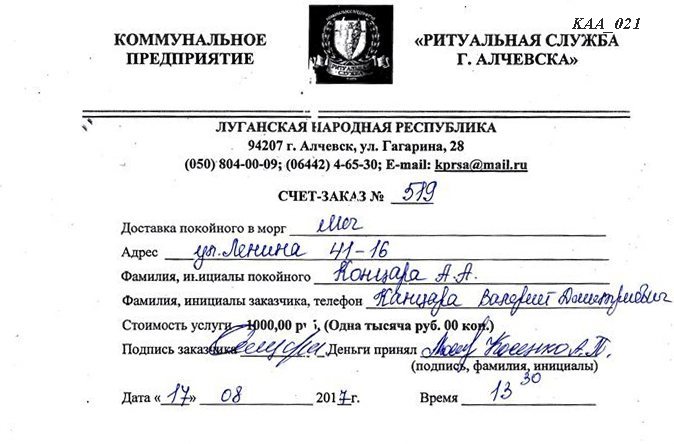 KAA_021
КОММУНАЛЬНОЕ ПРЕДПРИЯТИЕ
РИТУАЛЬНАЯ СЛУЖБА
«РИТУАЛЬНАЯ СЛУЖБА Г. АЛЧЕВСКА»
ЛУГАНСКАЯ НАРОДНАЯ РЕСПУБЛИКА
94207 г. Алчевск, ул. Гагарина, 28
(050) 804-00-09; (06442) 4-65-30; E-mail: kprsa@mail.ru
СЧЕТ-ЗАКАЗ № 519
Доставка покойного в морг
Адрес ул. Ленина 41-16
Фамилия, инициалы покойного Концара А.А.
Фамилия, инициалы заказчика, телефон Канцара Валерий Дмитриевич
Стоимость услуги – 1000,00 руб. (Одна тысяча руб. 00 коп.)
Подпись заказчика Деньги принял Косенко А.П.
(подпись, фамилия, инициалы)
Дата «17» 08 2017г. Время 13 30